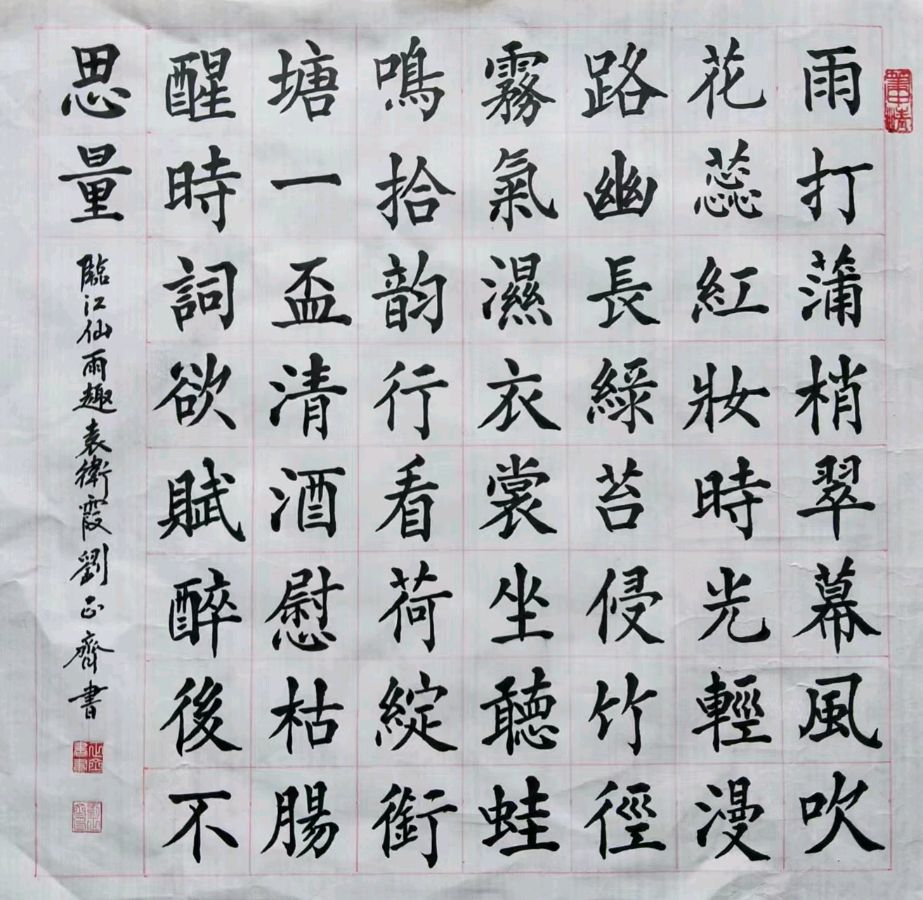 雨打蒲梢翠幕風吹
花蕊紅妝時光輕漫
路幽長綠苔侵竹徑
霧氣濕衣裳坐聽蛙
鳴拾韵行看荷綻銜
塘一盃清酒慰枯腸
醒時詞欲賦醉後不
思量
臨江仙雨趣袁衛霞劉正齊書